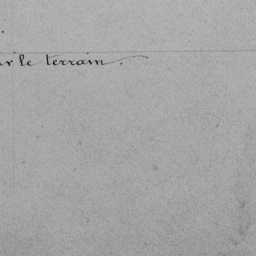 r le terrain.